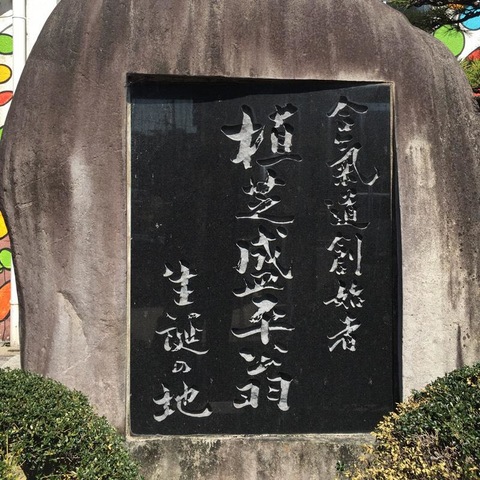 合氣道創始者
植芝盛平翁
生誕の地